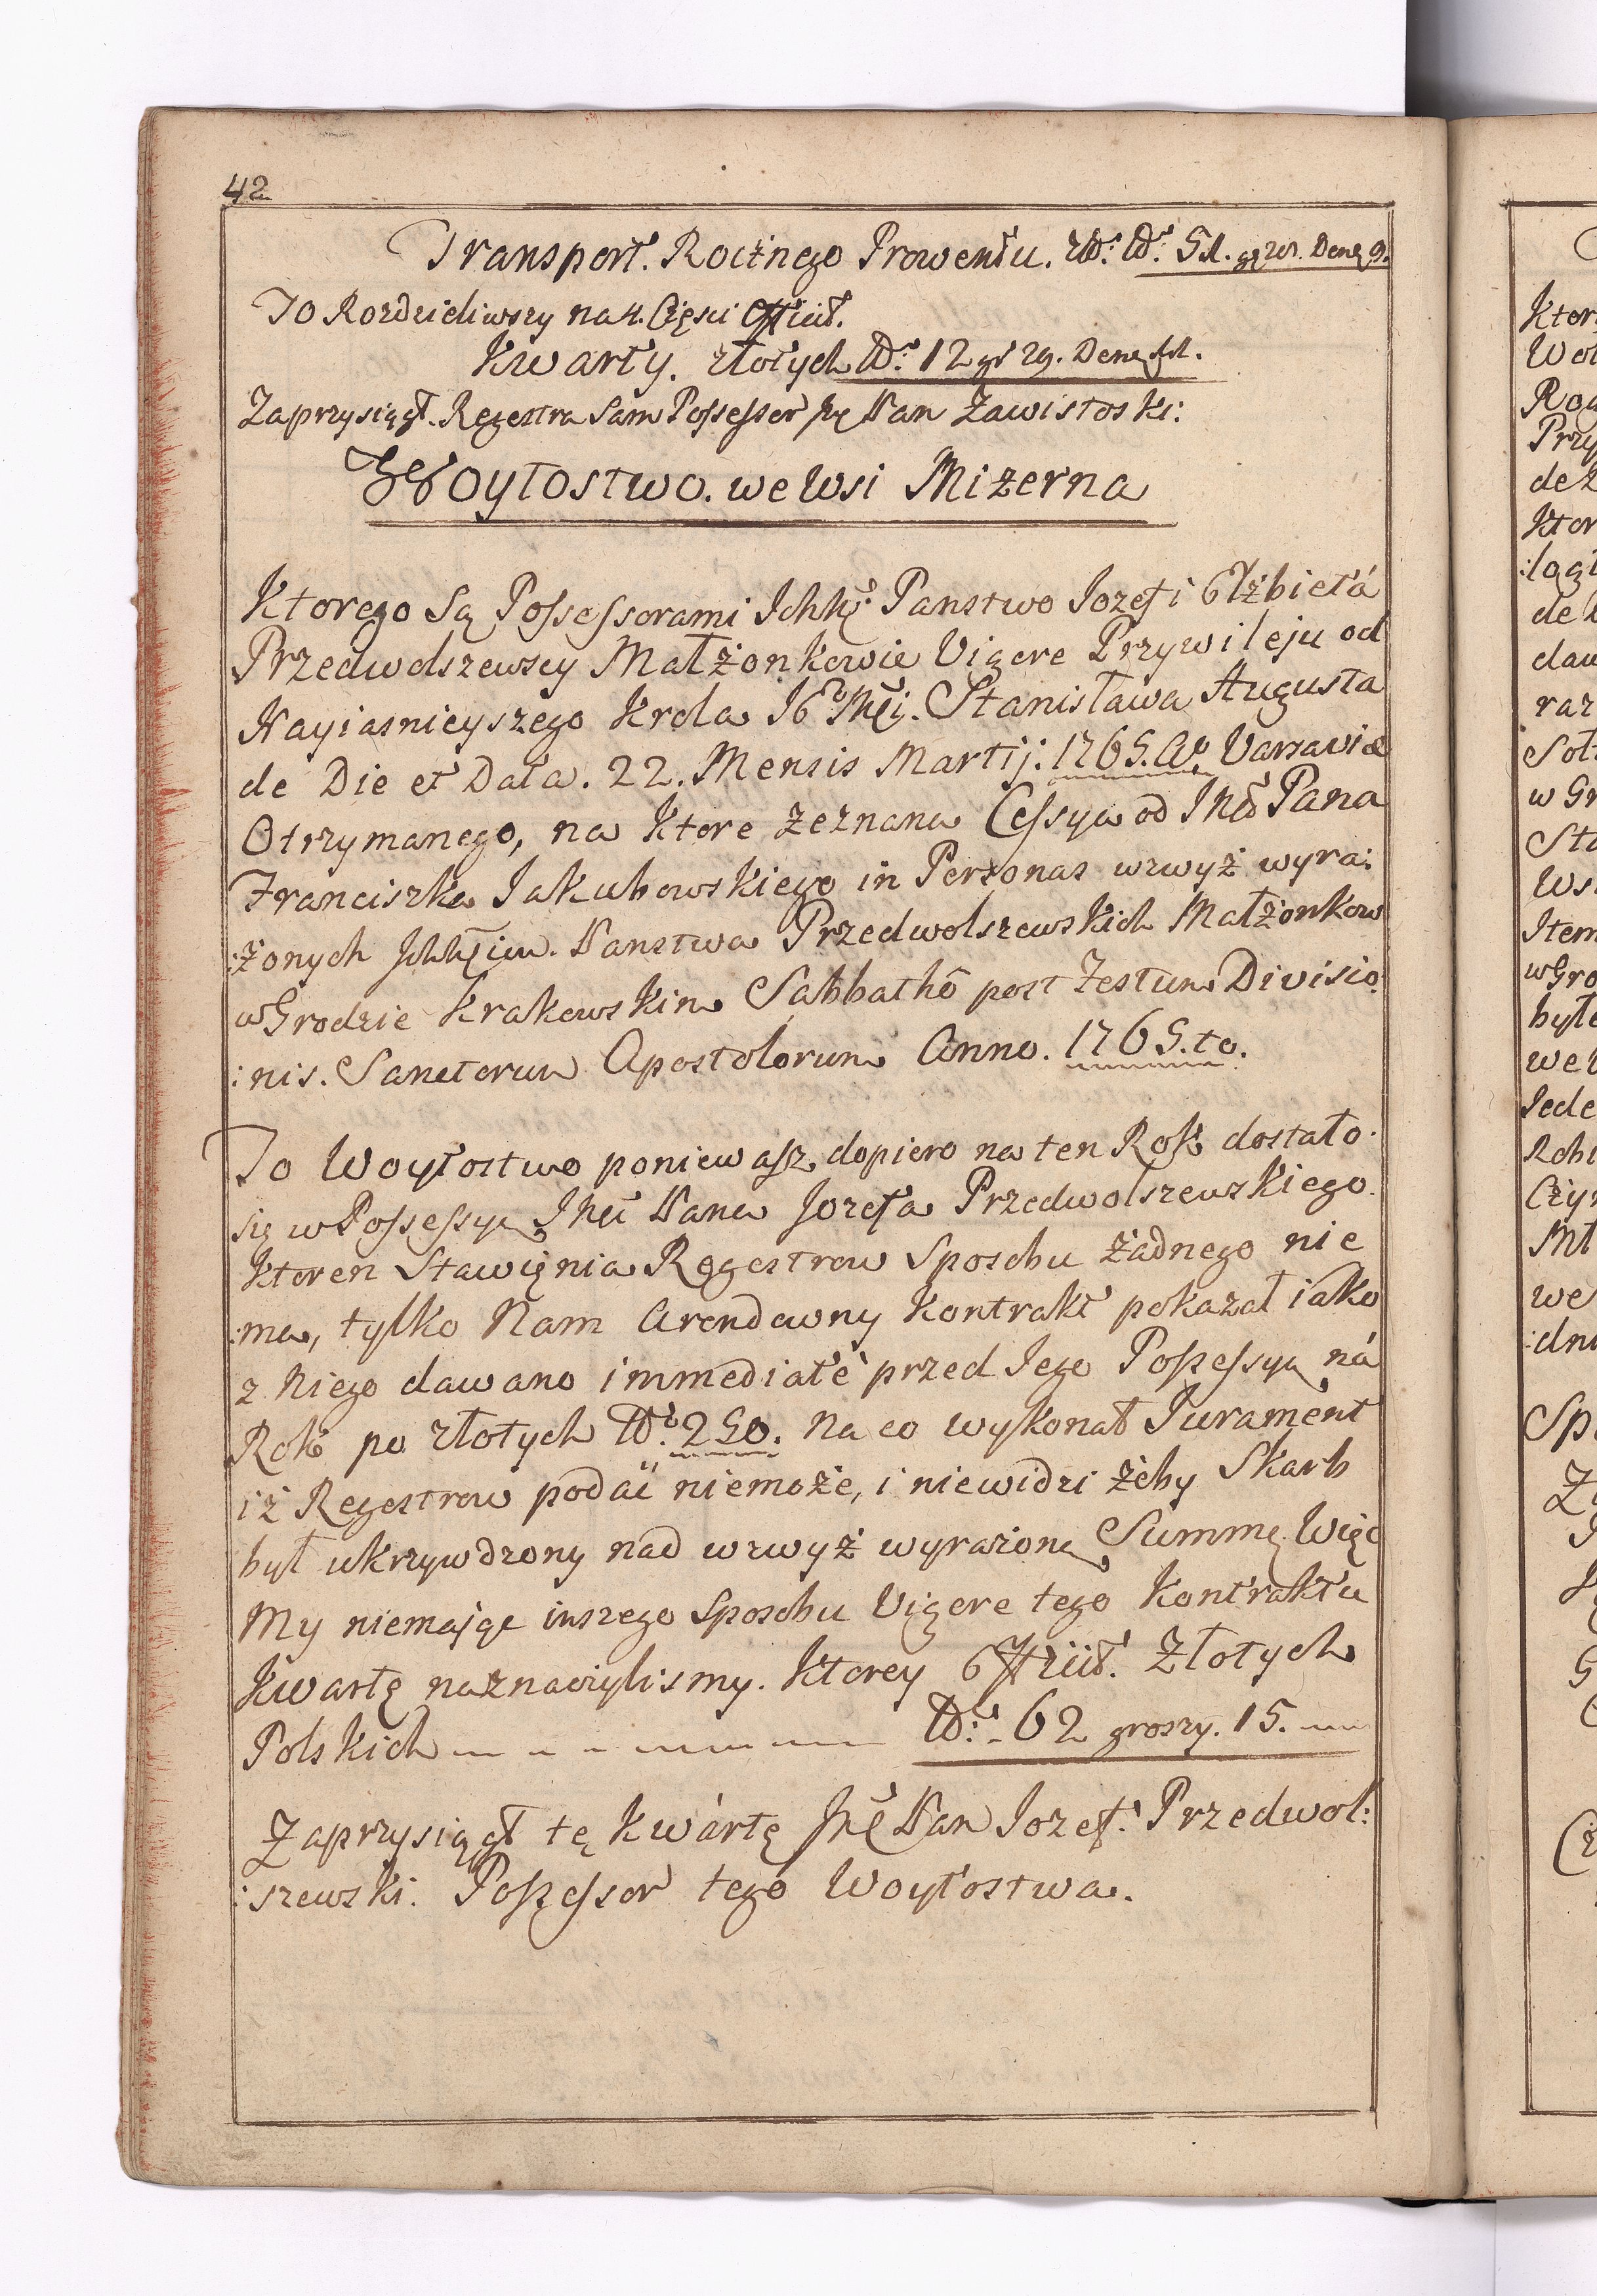 42
Transport. Rocznego Prowentu. zł. No. 51. gr 28. Dena 9.
To Rozdzieliwszy na 4. Części Efficit.
Kwarty. złotych No. 12 gr 29. Dena
Zaprzysiągł. Regestra Sam Possessor Jmć Pan Zawistoski:
Woytostwo. we Wsi Mizerna
Ktorego Są Possessorami Ichść Panstwo Iozef i Elżbietá
Przedwolszewscy Małżonkowie Vigore Przywileju od
Nayiasnieyszego Krola JGo Mći. Stanisława Augusta
de Die et Data. 22. Mensis Martij. 1765. Ao. Varsaviæ
Otrzymanego, na Ktore zeznana Cessya od Jmći Pana
Franciszka Jakubowskiego in Personas wzwyż wyra:
:żonych Ichściow. Panstwa Przedwolszewskich Małżonkow
w Grodzie Krakowskim Sabbathô post Festum Divisio:
:nis. Sanctorum Apostolorum Anno. 1765.to.
To Woytostwo poniewasz dopiero na ten Rok dostało
się w Possessyą Jmći Pana Jozefa Przedwolszewskiego.
Ktoren Stawięnia Regestrow Sposobu żadnego nie
:ma, tylko Nam Arendowny Kontrakt pokazał iako
z Niego dawano immediatè przed Iego Possessyą ná
Rok po złotych No. 250. Na co wykonał Jurament
iż Regestrow podać niemoże, i niewidzi żeby Skarb
był ukrzywdzony nad wzwyż wyrażoną Summę. Więc
My niemając inszego Sposobu Vigore tego Kontraktu
Kwartę naznaczylismy. Ktorey Efficit. Złotych
Polskich No. 62 groszy. 15.
Zaprzysiągł tę Kwartę Jmć Pan Iozef. Przedwol:
:szewski. Possessor tego Woytostwa.